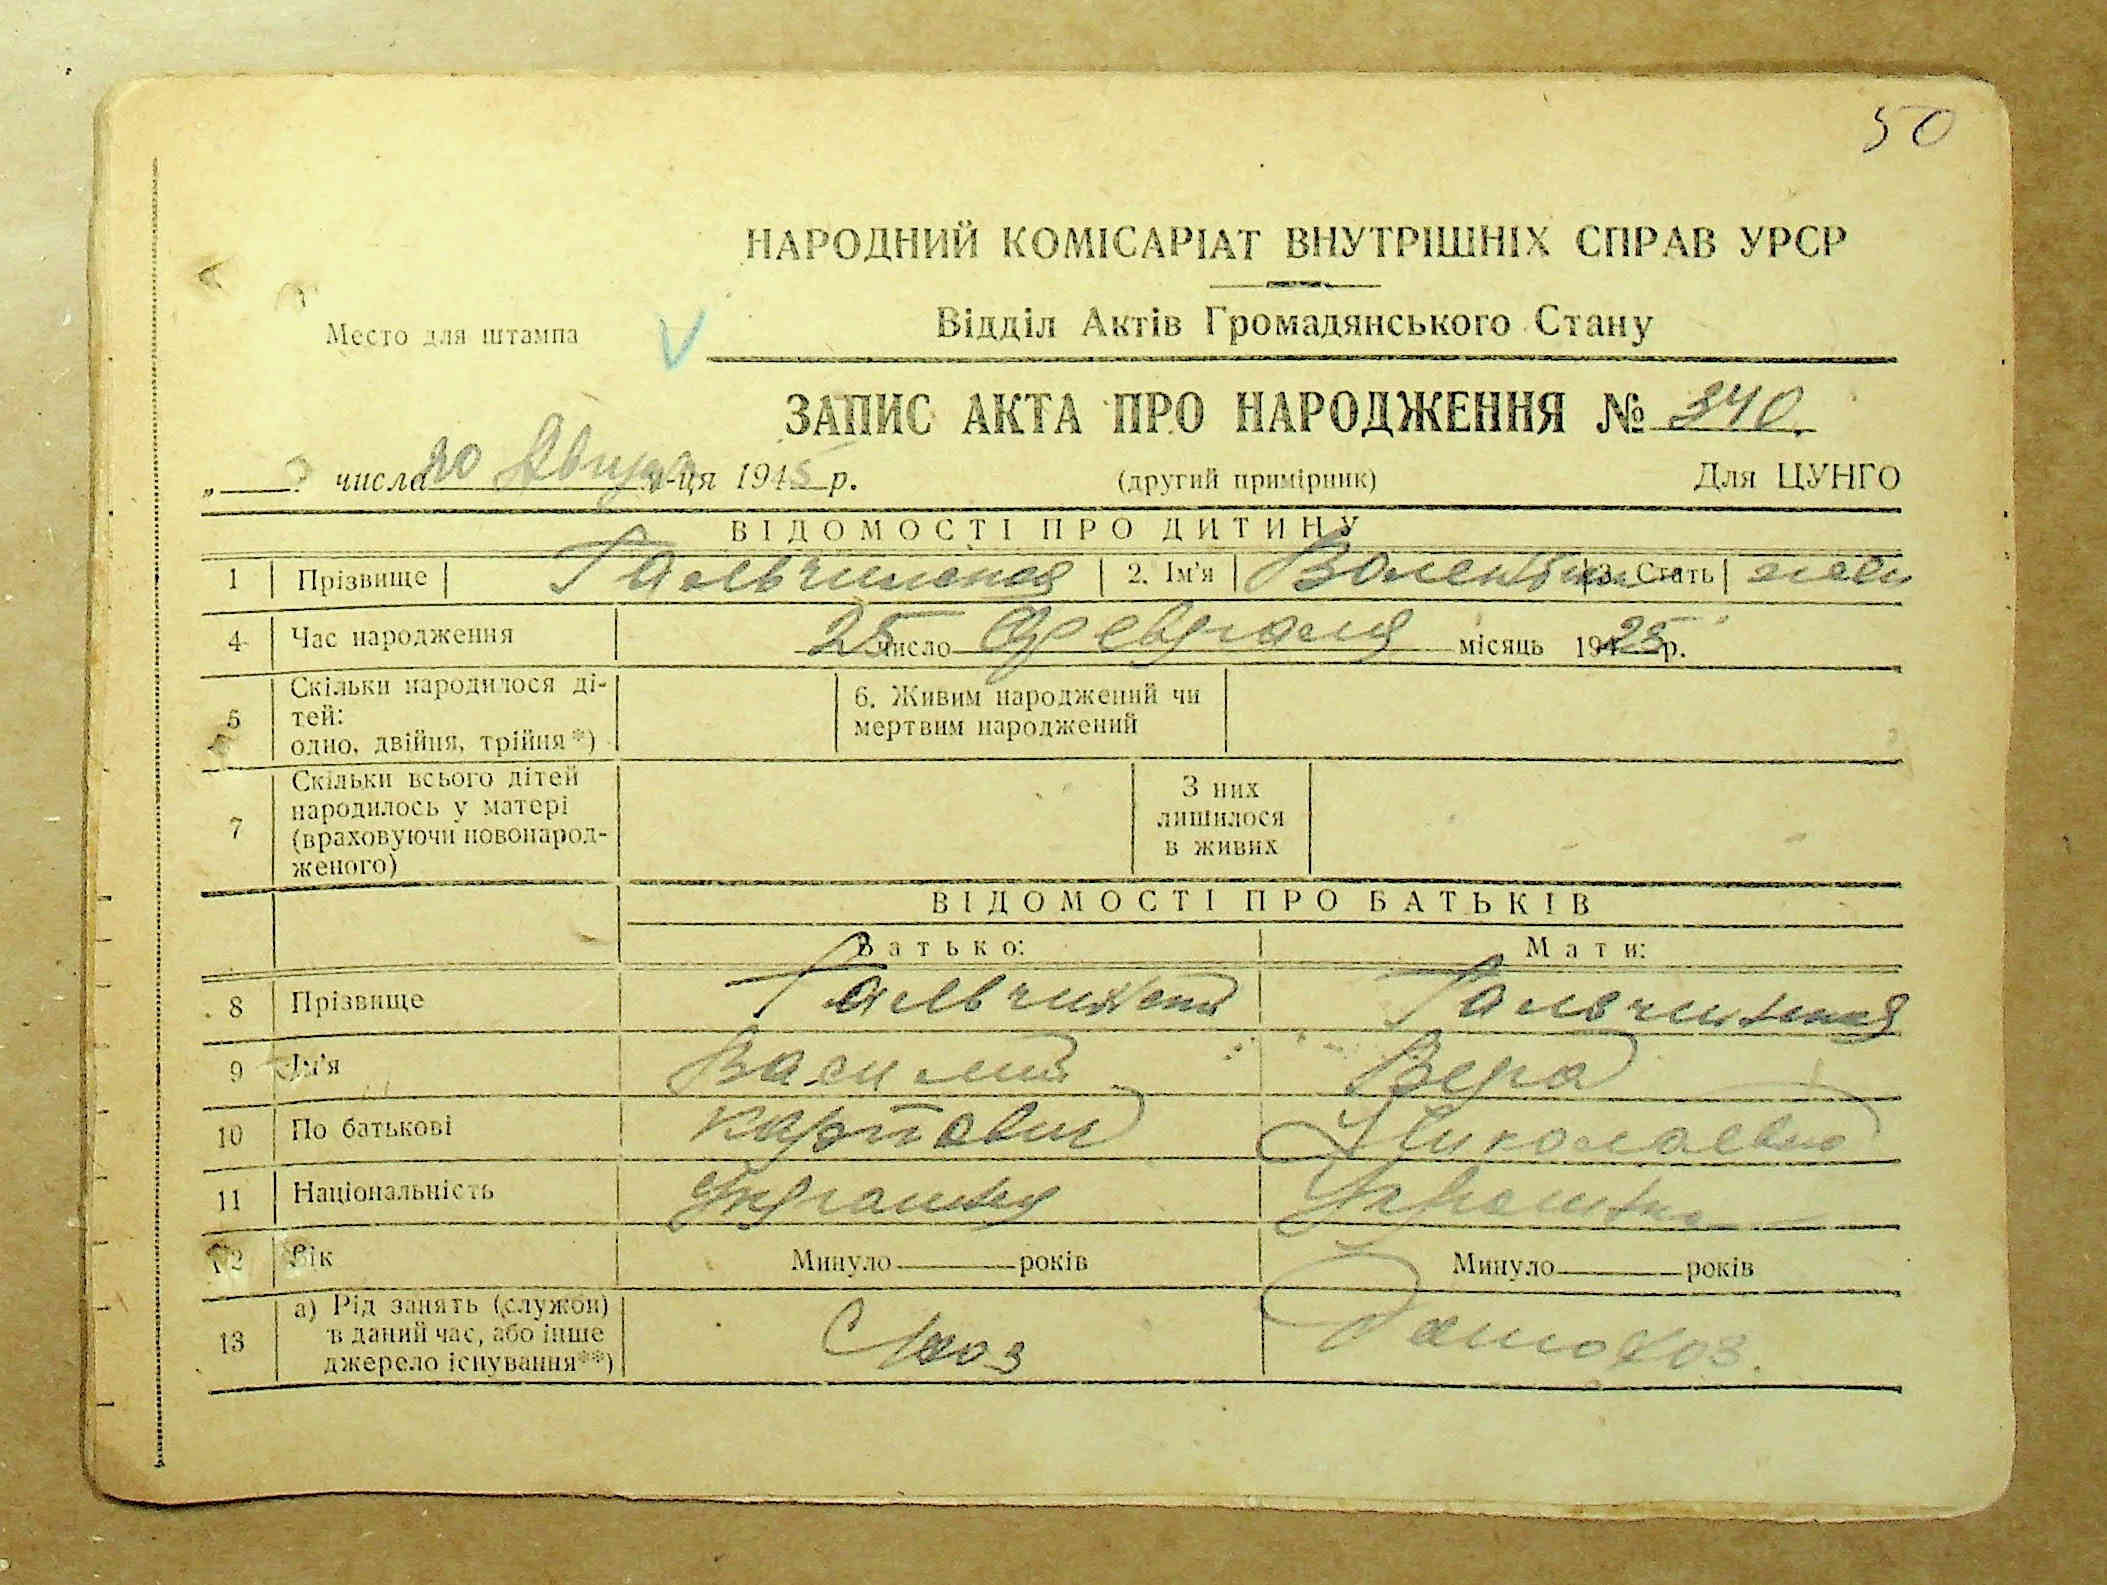 50
НАРОДНИЙ КОМІСАРІАТ ВНУТРІШНІХ СПРАВ УРСР
Место для штампа
V
Відділ Актів Громадянського Стану
ЗАПИС АКТА ПРО НАРОДЖЕННЯ № 340.
„ числа 20 Августа м-ця 1945 р. (другий примірник) Для ЦУНГО
ВІДОМОСТІ ПРО ДИТИНУ
1 Прізвище Гальчинская 2. Ім'я Валентина 3. Стать жен
4 Час народження 25 число Февраля місяць 1925 р.
5 Скільки народилося ді-
тей:
одно, двійня, трійня*)
6. Живим народжений чи
мертвим народжений
7 Скільки всього дітей
народилось у матері
(враховуючи новонарод-
женого)
З них
лишилося
в живих
ВІДОМОСТІ ПРО БАТЬКІВ
Батько: Мати:
8 Прізвище Гальчинский Гальчинская
9 Ім'я Василий Вера
10 По батькові Карпович Николаевна
11 Національність Украинец Украинка
12 Вік Минуло років Минуло років
13 а) Рід занять (служби)
в даний час, або інше
джерело існування**)